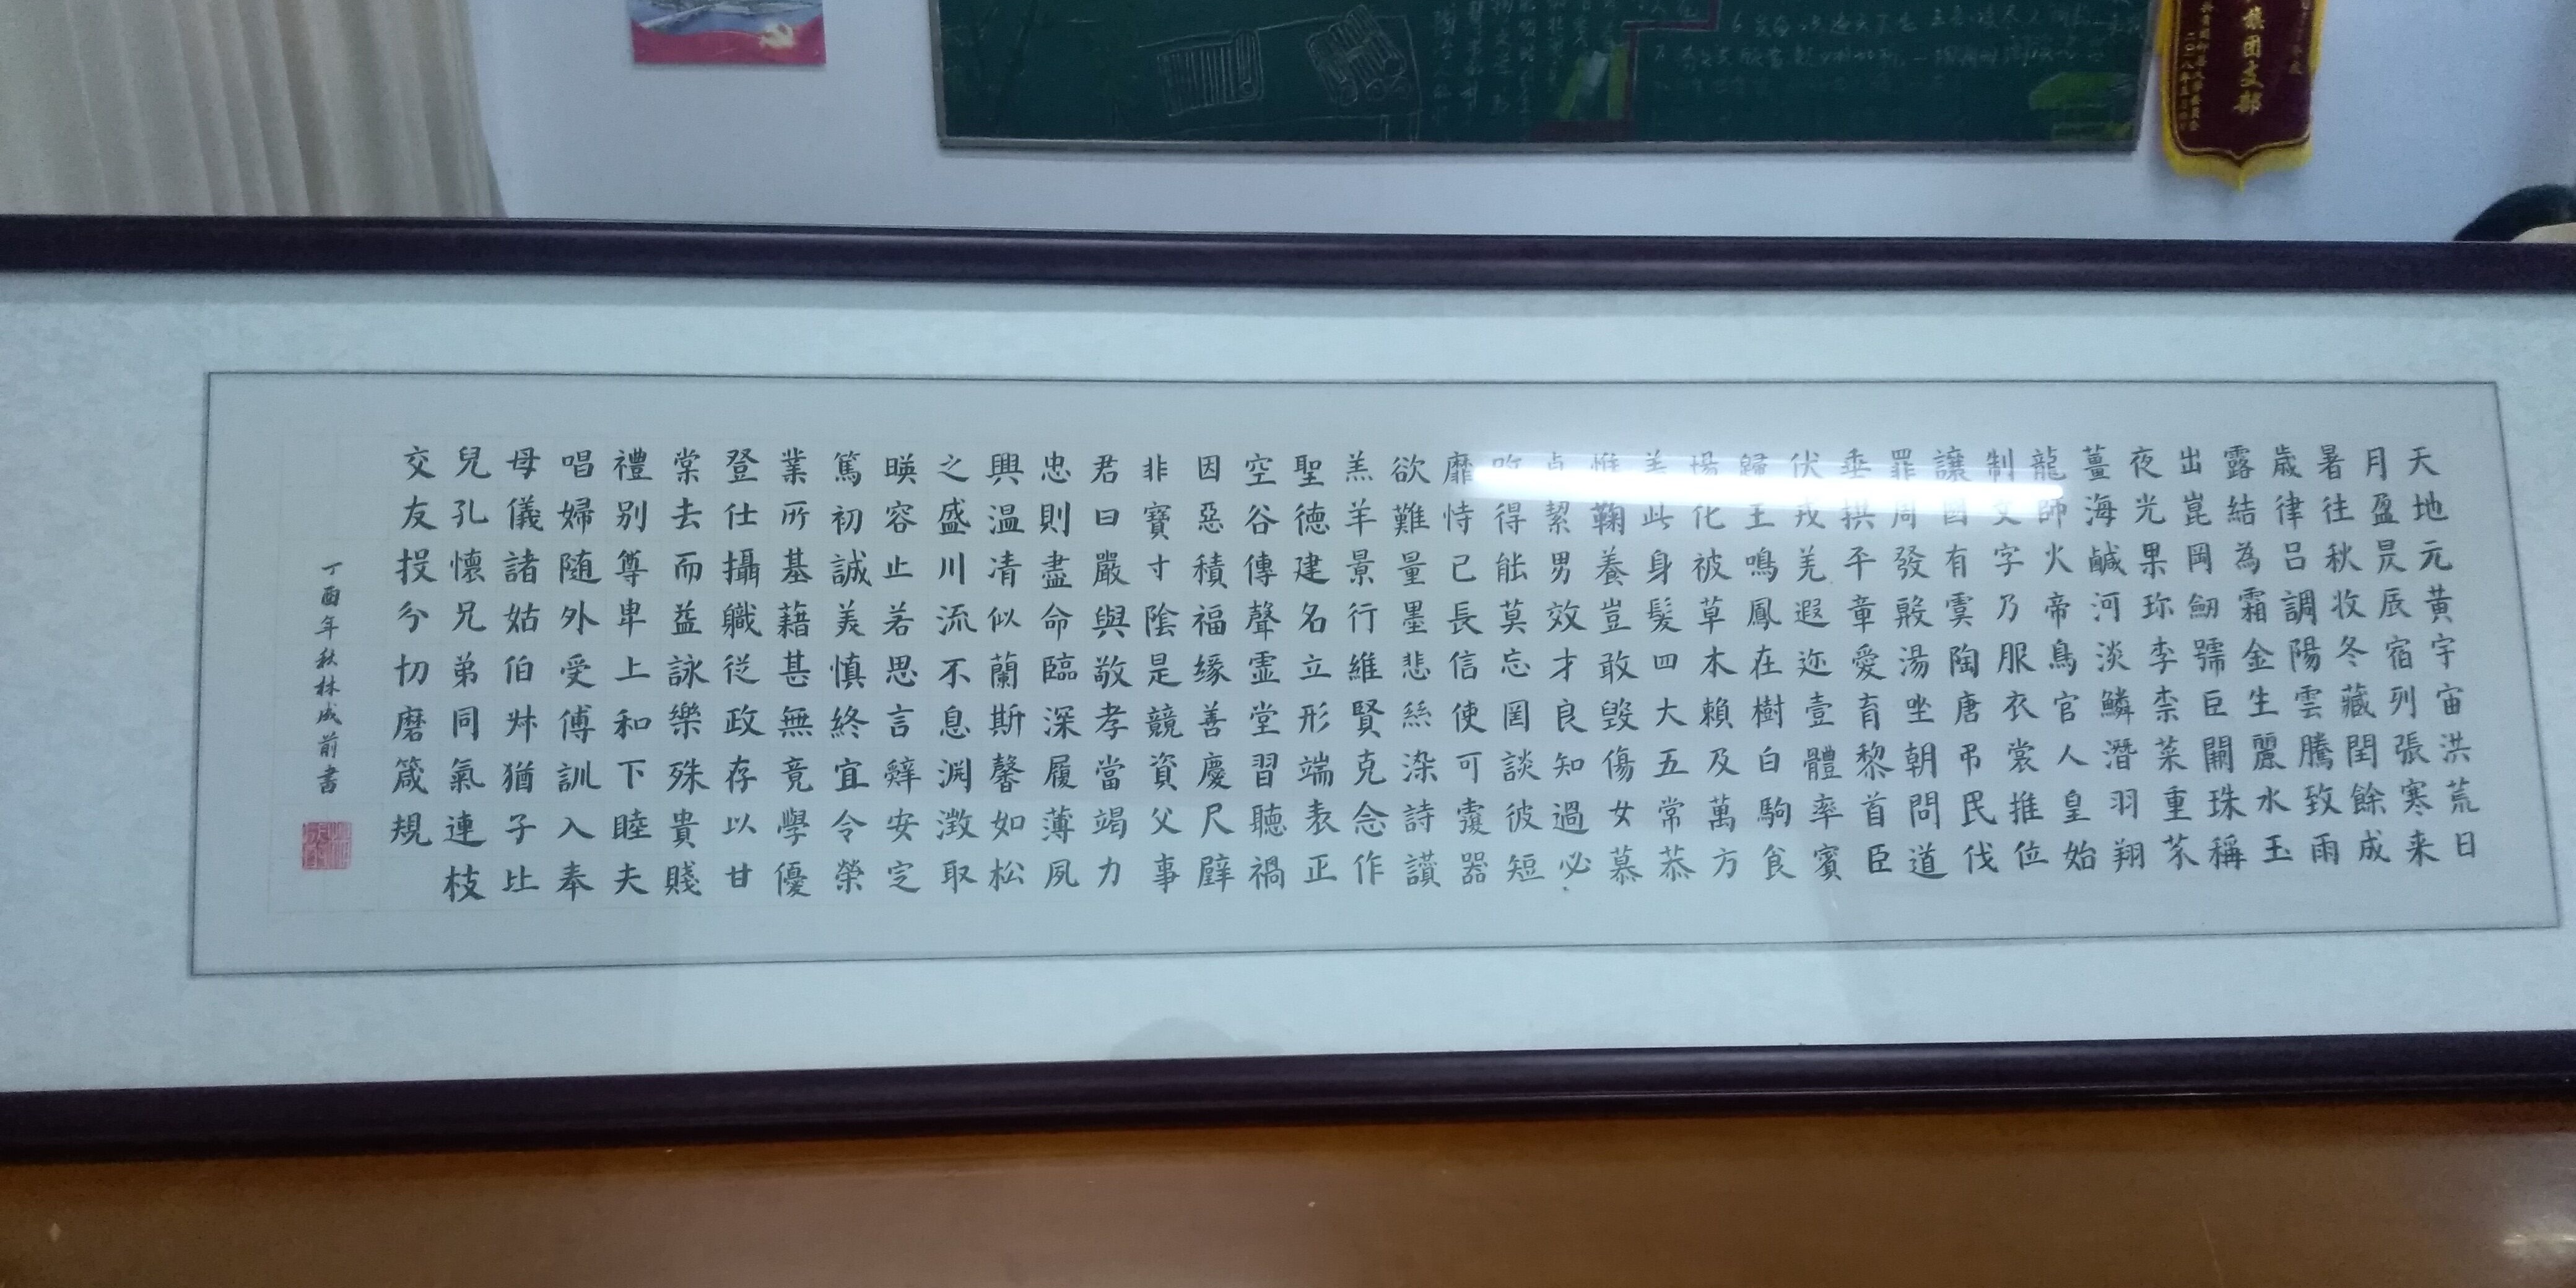 天地元黃宇宙洪荒日
月盈昃辰宿列張寒来
暑往秋收冬藏閏餘成
歲律吕調陽雲騰致雨
露結為霜金生麗水玉
出崑岡劒號巨闕珠稱
夜光果珎李柰菜重芥
薑海鹹河淡鱗潛羽翔
龍師火帝鳥官人皇始
制文字乃服衣裳推位
讓國有虞陶唐吊民伐
罪周發殷湯坐朝問道
垂拱平章愛育黎首臣
伏戎羌遐迩壹體率賓
歸王鳴鳳在樹白駒食
場化被草木賴及萬方
盖此身髮四大五常恭
惟鞠養豈敢毀傷女慕
貞絜男效才良知過必
改得能莫忘罔談彼短
靡恃己長信使可覆器
欲難量墨悲絲染詩讚
羔羊景行維賢克念作
聖德建名立形端表正
空谷傳聲霊堂習聽禍
因惡積福缘善慶尺璧
非寶寸陰是競資父事
君曰嚴與敬孝當竭力
忠則盡命臨深履薄夙
興温清似蘭斯馨如松
之盛川流不息渊澂取
暎容止若思言辭安定
篤初誠美慎終宜令榮
業所基藉甚無竟學優
登仕攝職從政存以甘
棠去而益詠樂殊貴賤
禮別尊卑上和下睦夫
唱婦随外受傅訓入奉
母儀諸姑伯叔猶子比
兒孔懷兄弟同氣連枝
交友投分切磨箴規
丁酉年秋林成前書
旗团支部